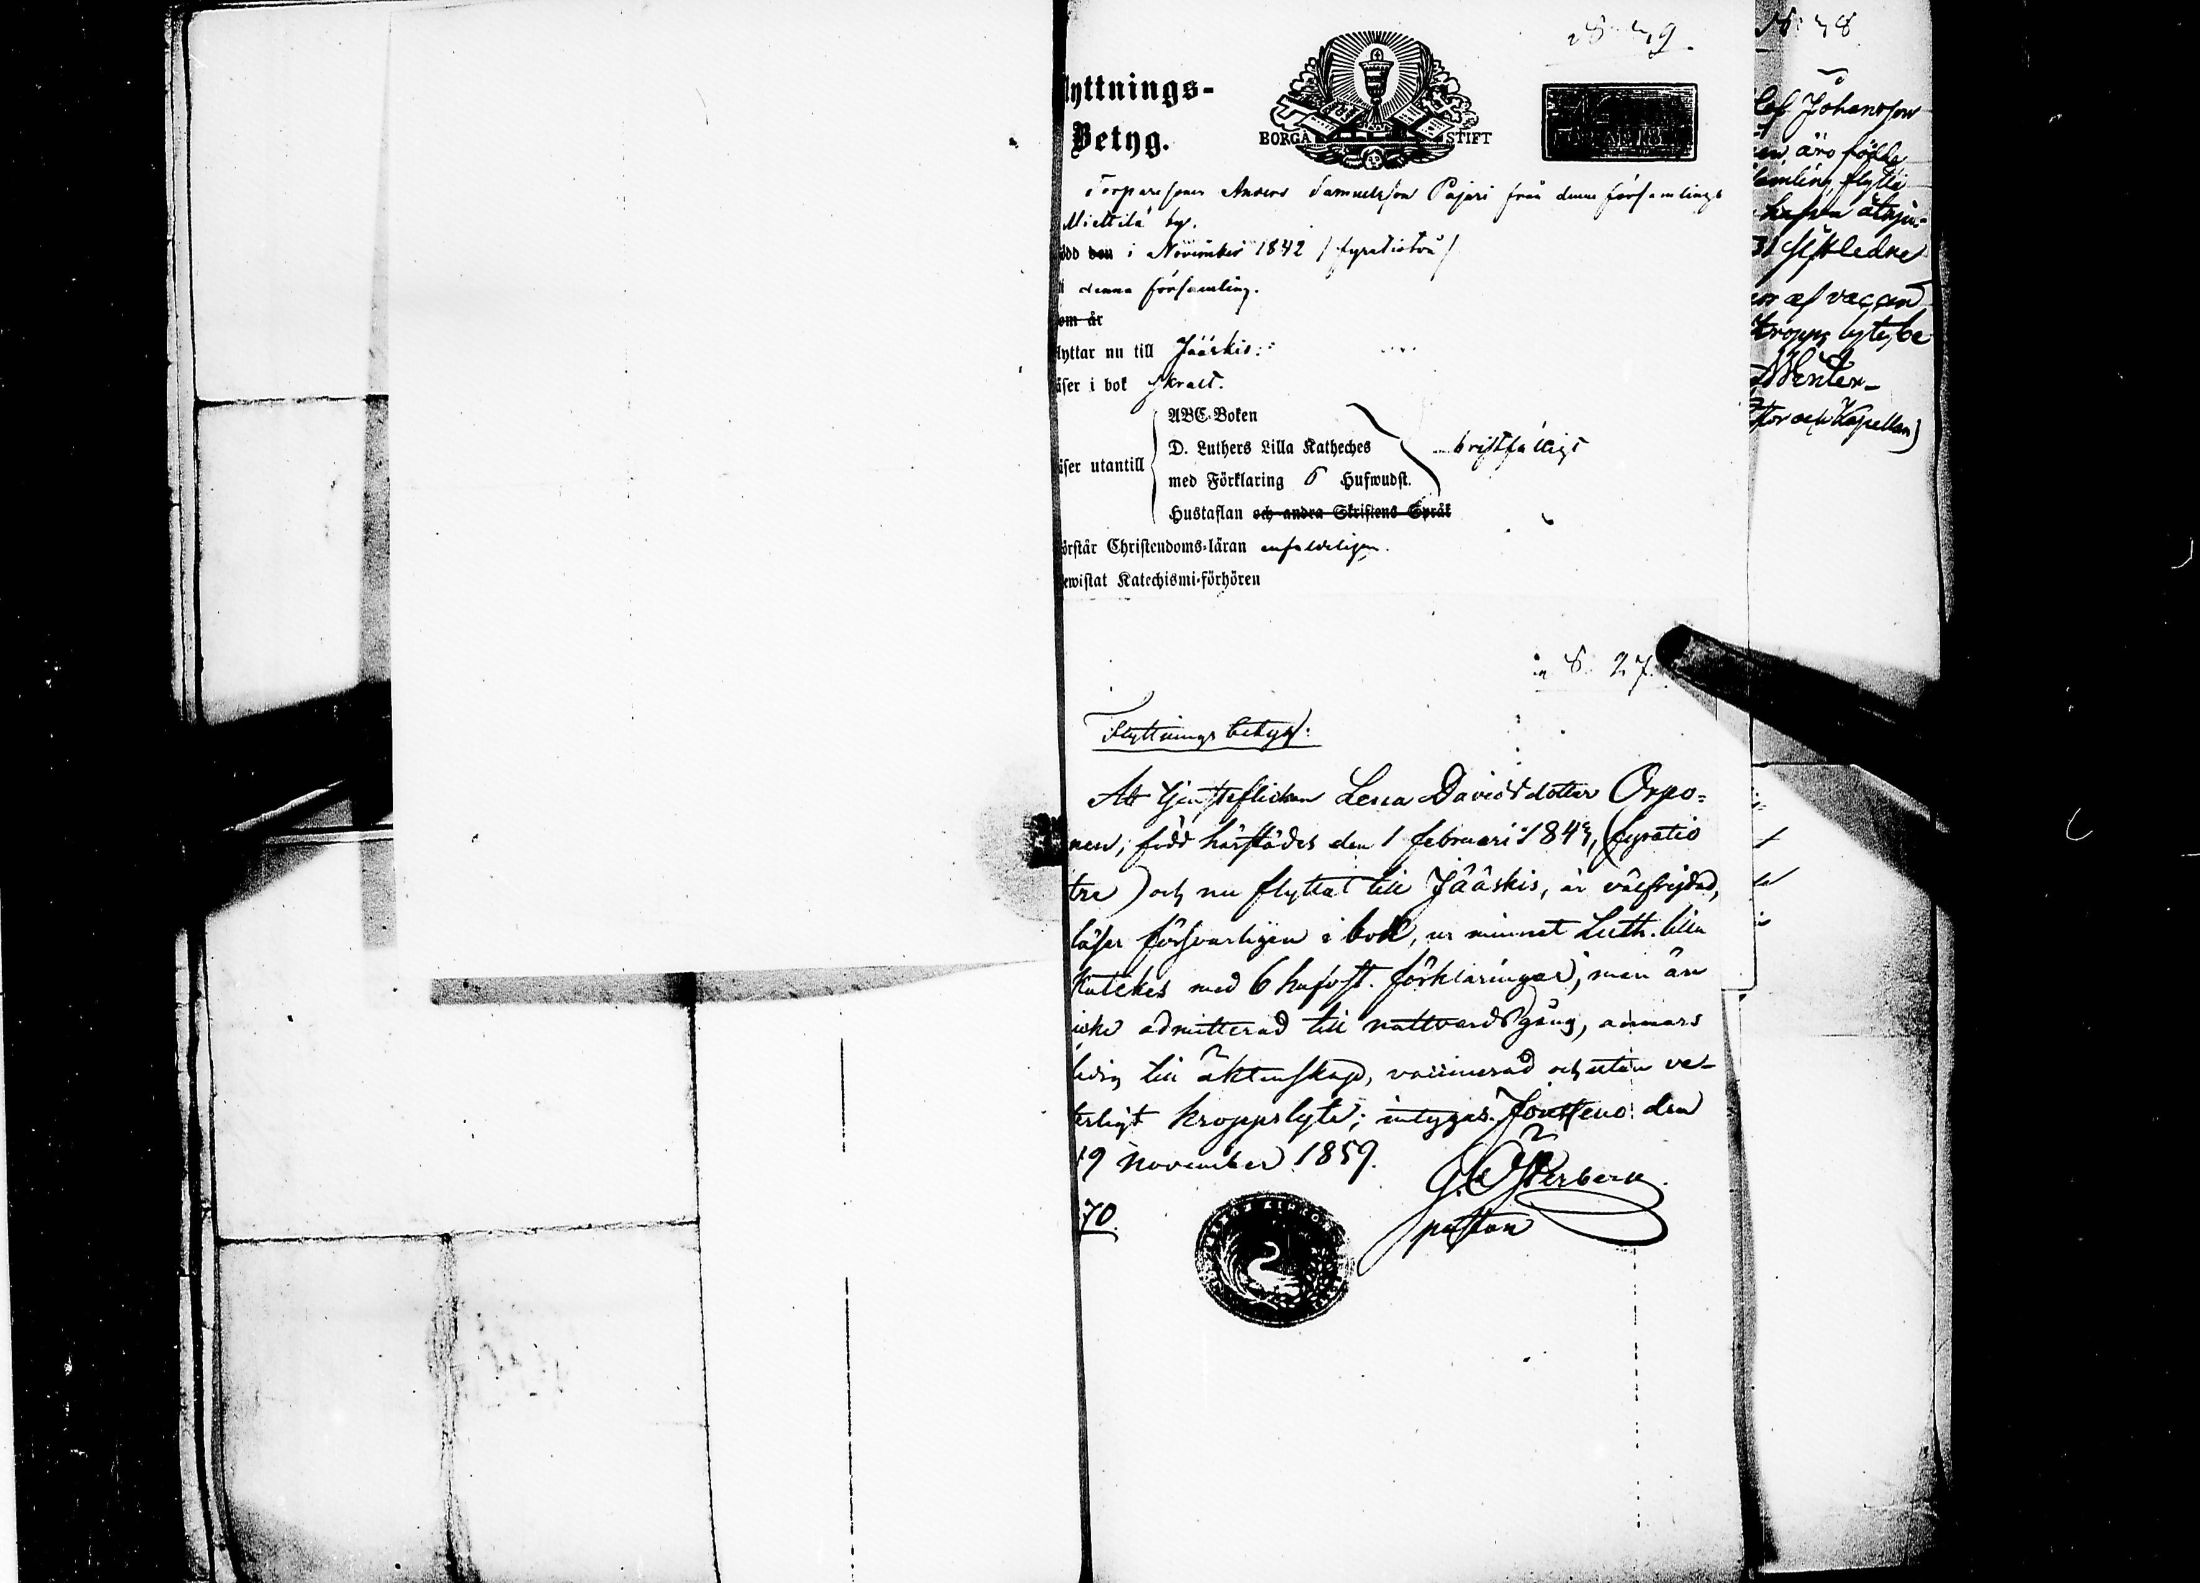 lyttnings-
Betyg.
BORGÅ STIFT
Torparesonen Anders Samuelsson Pajari från denna församlings
Miettilä by.
ödd den i November 1842 / fyratiotvå /
i denna församling.
om år
lyttar nu till Jääskis:
äser i bok skralt.
äser utantill
ABC-Boken
D. Luthers Lilla Katheches
med Förklaring 6 Hufwudst.
Hustaflan och andra Skriftens Språk
bristfälligt
örstår Christendoms-läran enfaldeligen.
ewistat Katechismi-förhören
N 27.
Flyttnings betyg:
Att Tjensteflickan Lena Davidsdotter Orpo=
nen, född härstädes den 1 februari 1843, (fyratio
tre) och nu flyttat till Jääskis, är välfrejdad,
läser försvarligen i bok, ur minnet Luth. lilla
Katekes med 6 hufvst. förklaringar, men än
icke admitterad till nattvardsgång, annars
ledig till äktenskap, vaccinerad och utan ve-
terligt kroppslyte; intygas. Joutseno den
19 November 1859.
G. Österberg
pastor
70.
N: 48
lof Johansson
en, äro födde
samling, flytta
hafva åtnju=
or af vaccen
kropps lyte, be
Wenter-
tor och Kapellan)